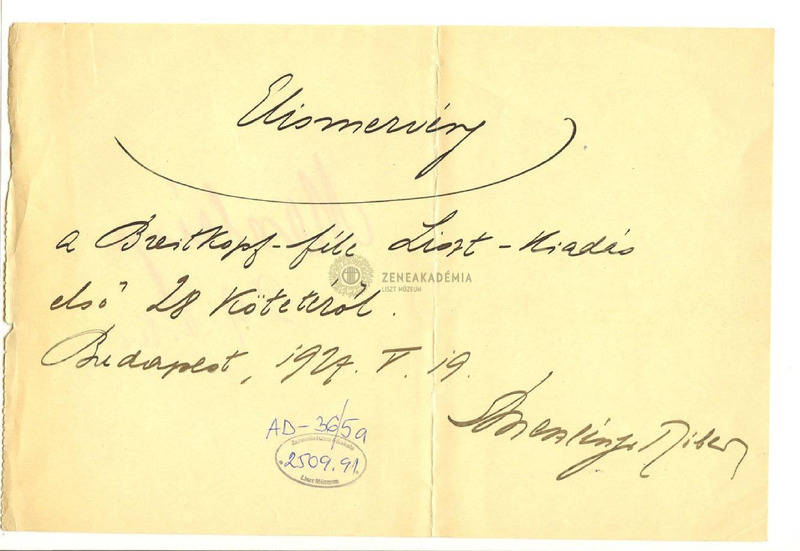 Elismervény
a Breitkopf-féle Liszt-Kiadás
első 28 Kötetéről.
Budapest, 1927. V. 19.
Tibor
ZENEAKADÉMIA
LISZT MÚZEUM
AD-36/5a
2509.91.
Liszt Múzeum